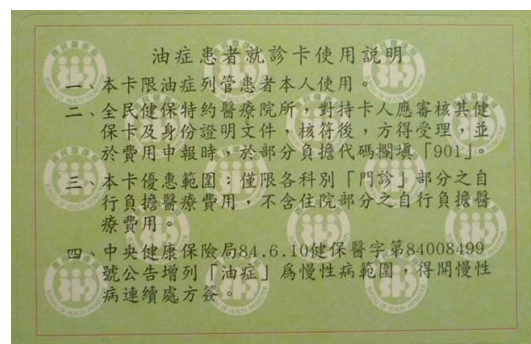 油症患者就診卡使用說明
一、本卡限油症列管患者本人使用。
二、全民健保特約醫療院所，對持卡人應審核其健
保卡及身份證明文件，核符後，方得受理，並
於費用申報時，於部分負擔代碼欄填「901」。
三、本卡優惠範圍：僅限各科別「門診」部分之自
行負擔醫療費用，不含住院部分之自行負擔醫
療費用。
四、中央健康保險局84.6.10健保醫字第84008499
號公告增列「油症」為慢性病範圍，得開慢性
病連續處方簽。